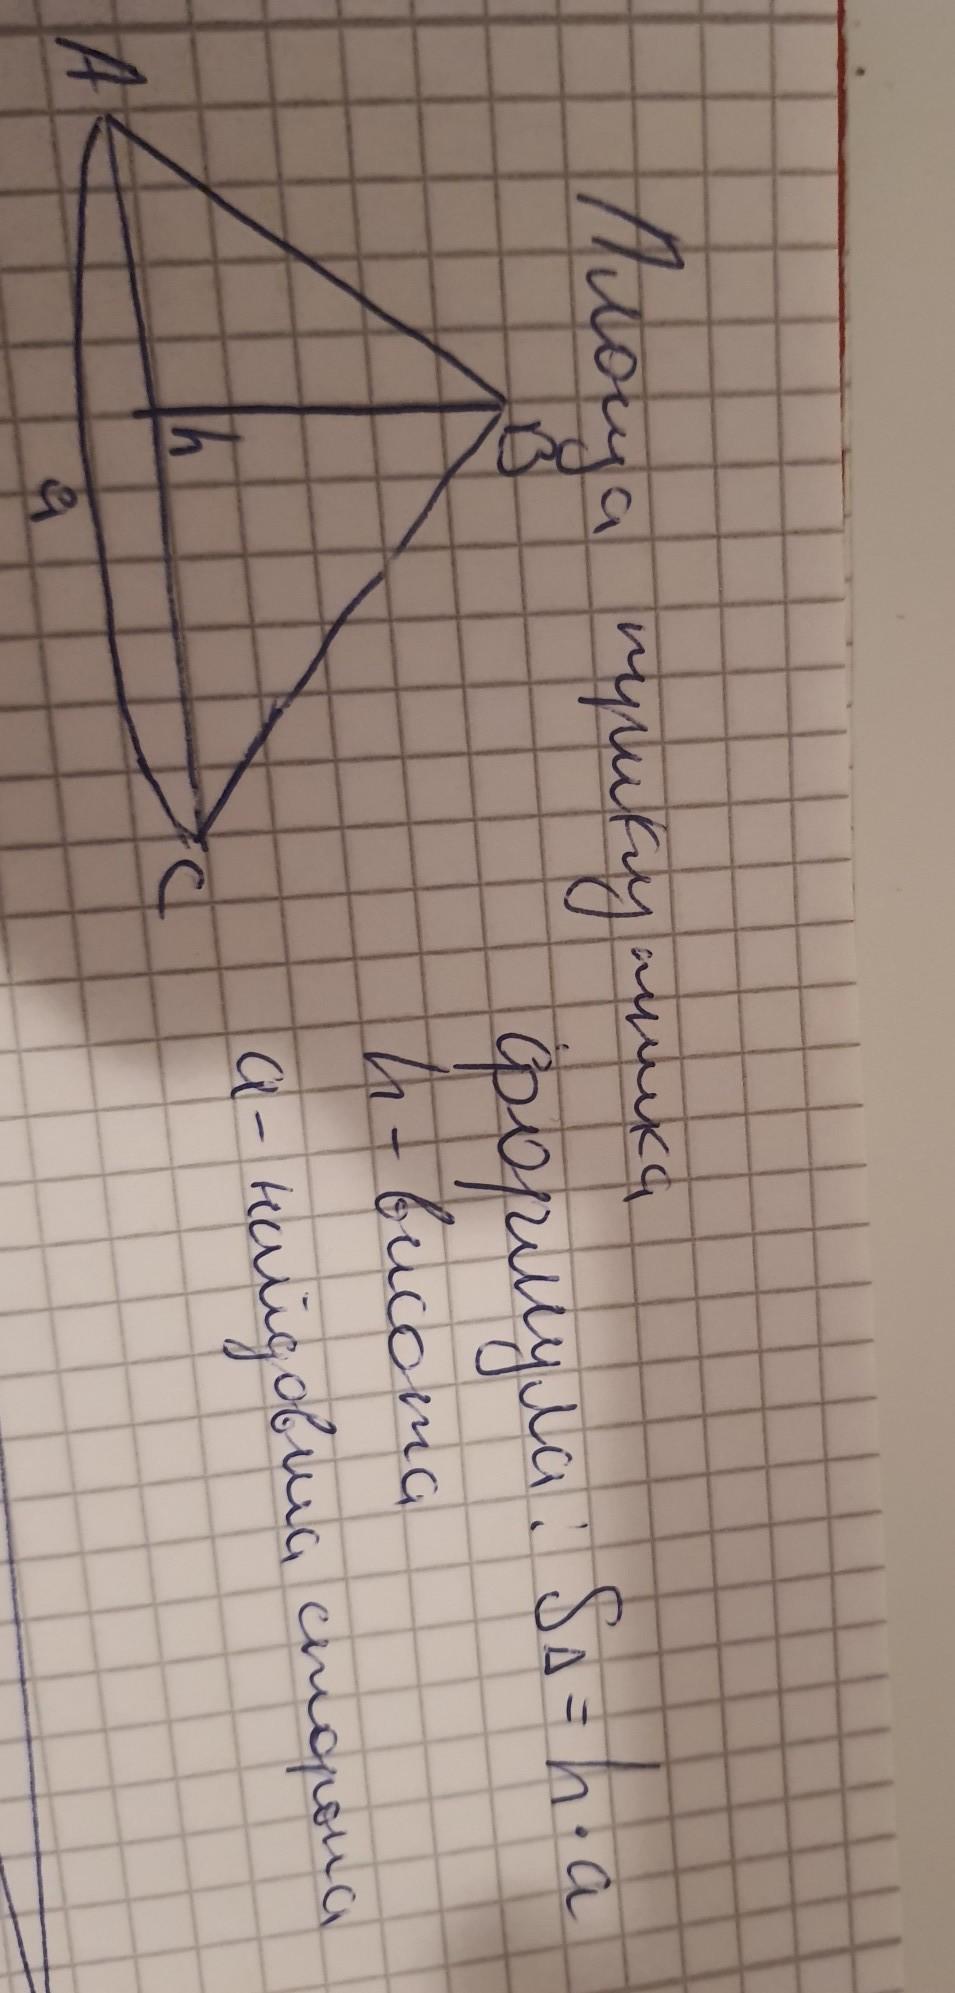 Площа трикутника
B
Формула: S△ = h · a
h - висота
h
a - найдовша сторона
A
C
a